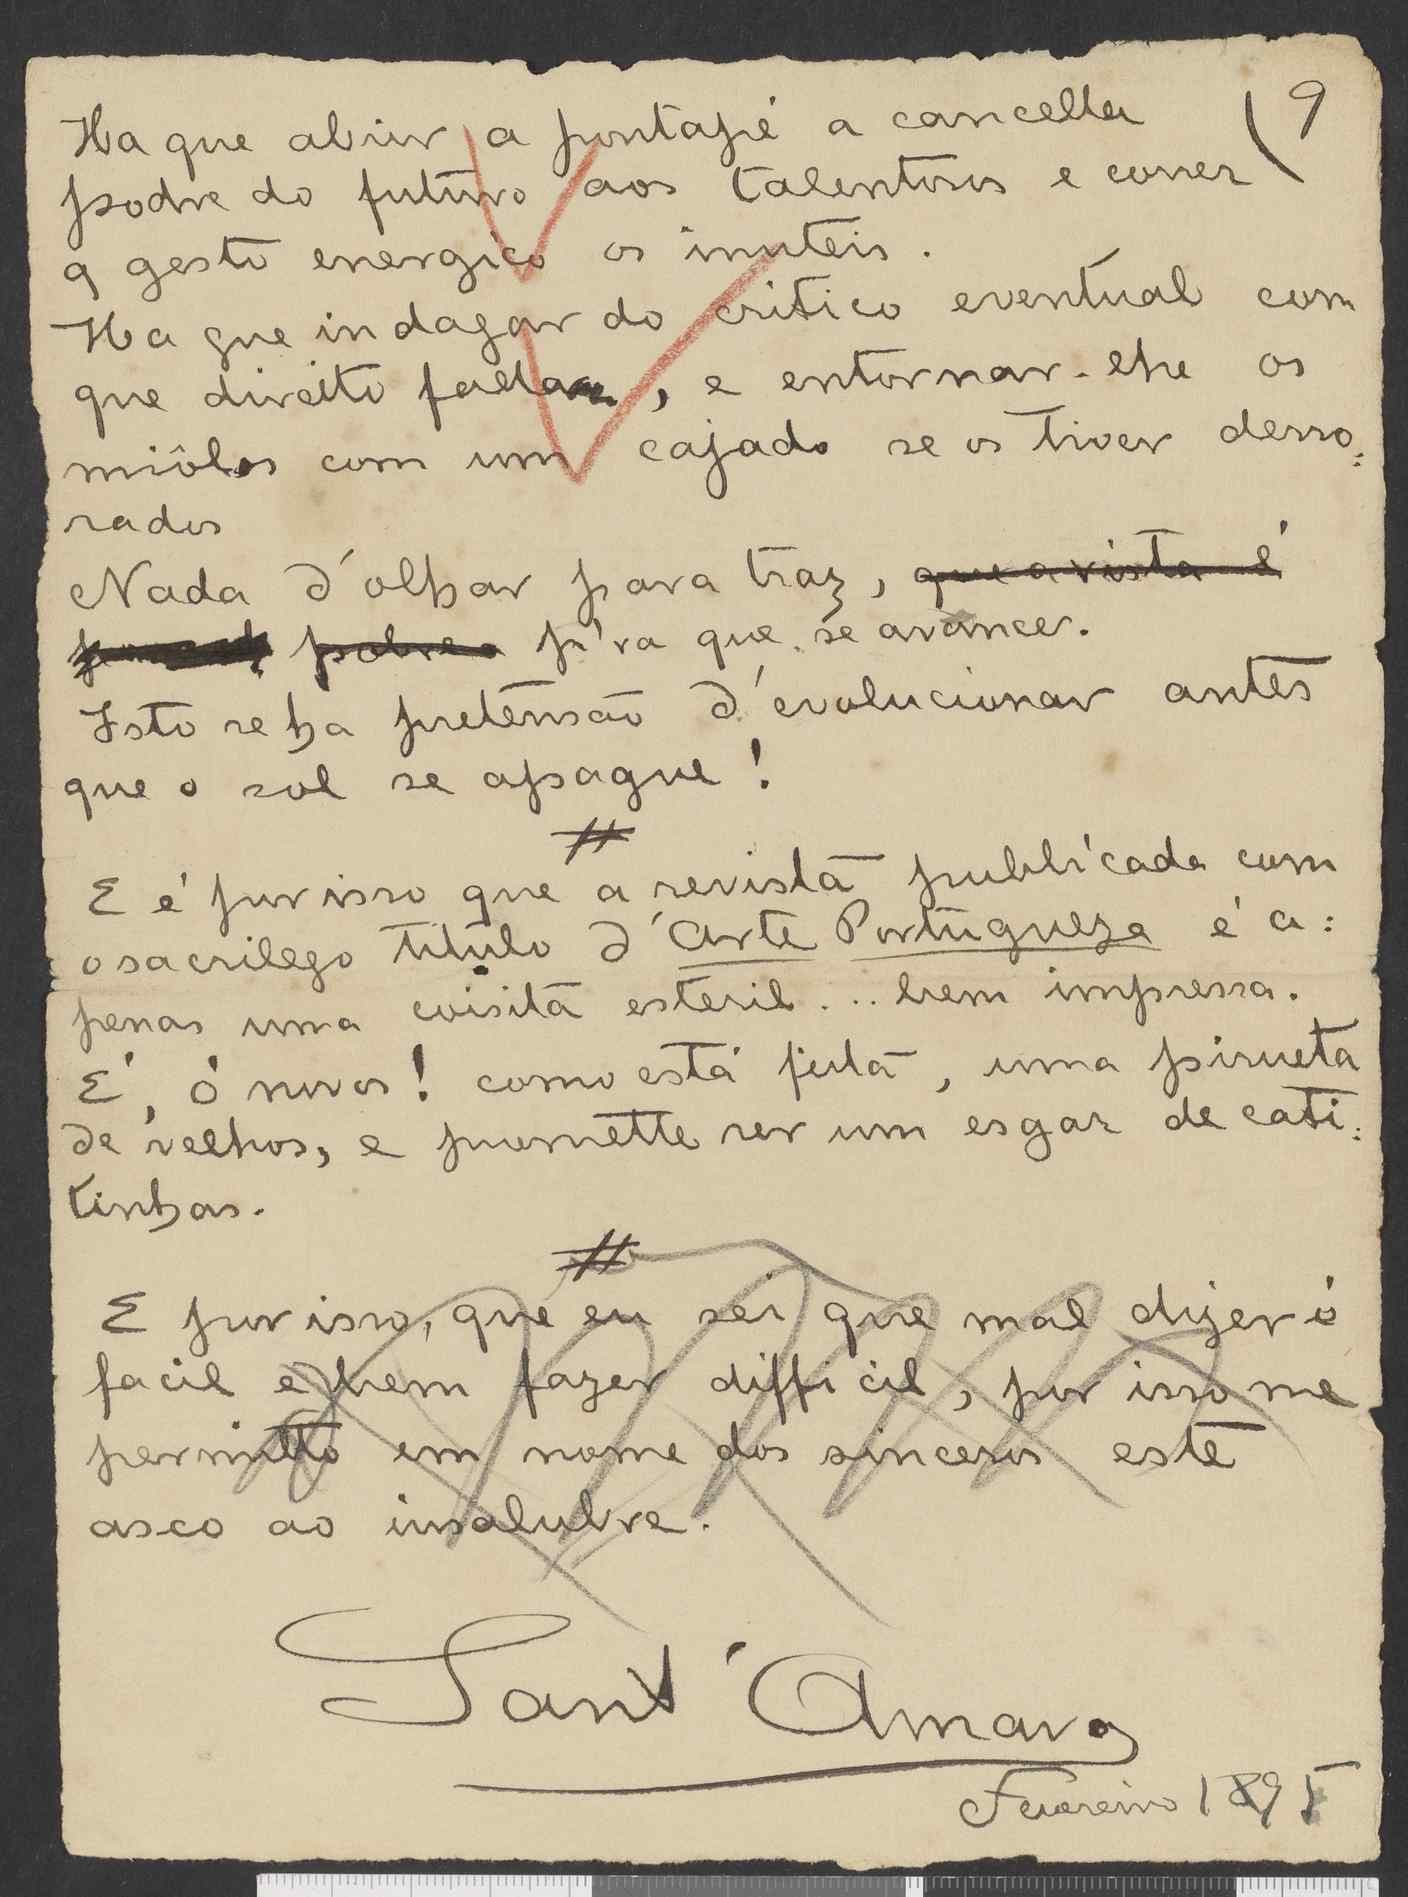 9
Ha que abrir a pontapé a cancella
podre do futuro aos talentosos e correr
a gesto energico os inuteis.
Ha que indagar do critico eventual com
que direito falla, e entornar-lhe os
miôlos com um cajado se os tiver desso:
rados
Nada d'olhar para traz, que a vista é
pobre p'ra que se avance.
Isto se ha pretensão d'evolucionar antes
que o sol se apague!
#
E é por isso que a revista publicada com
o sacrilego titulo d'Arte Portugueza é a:
penas uma coisita esteril... bem impressa.
É, ó novos! como está feita, uma pirueta
de velhos, e promette ser um esgar de cati:
tinhas.
#
E por isso, que eu sei que mal dizer é
facil e bem fazer difficil, por isso me
permitto em nome dos sinceros este
asco ao insalubre.
Sant'Amaro
Fevereiro 1895